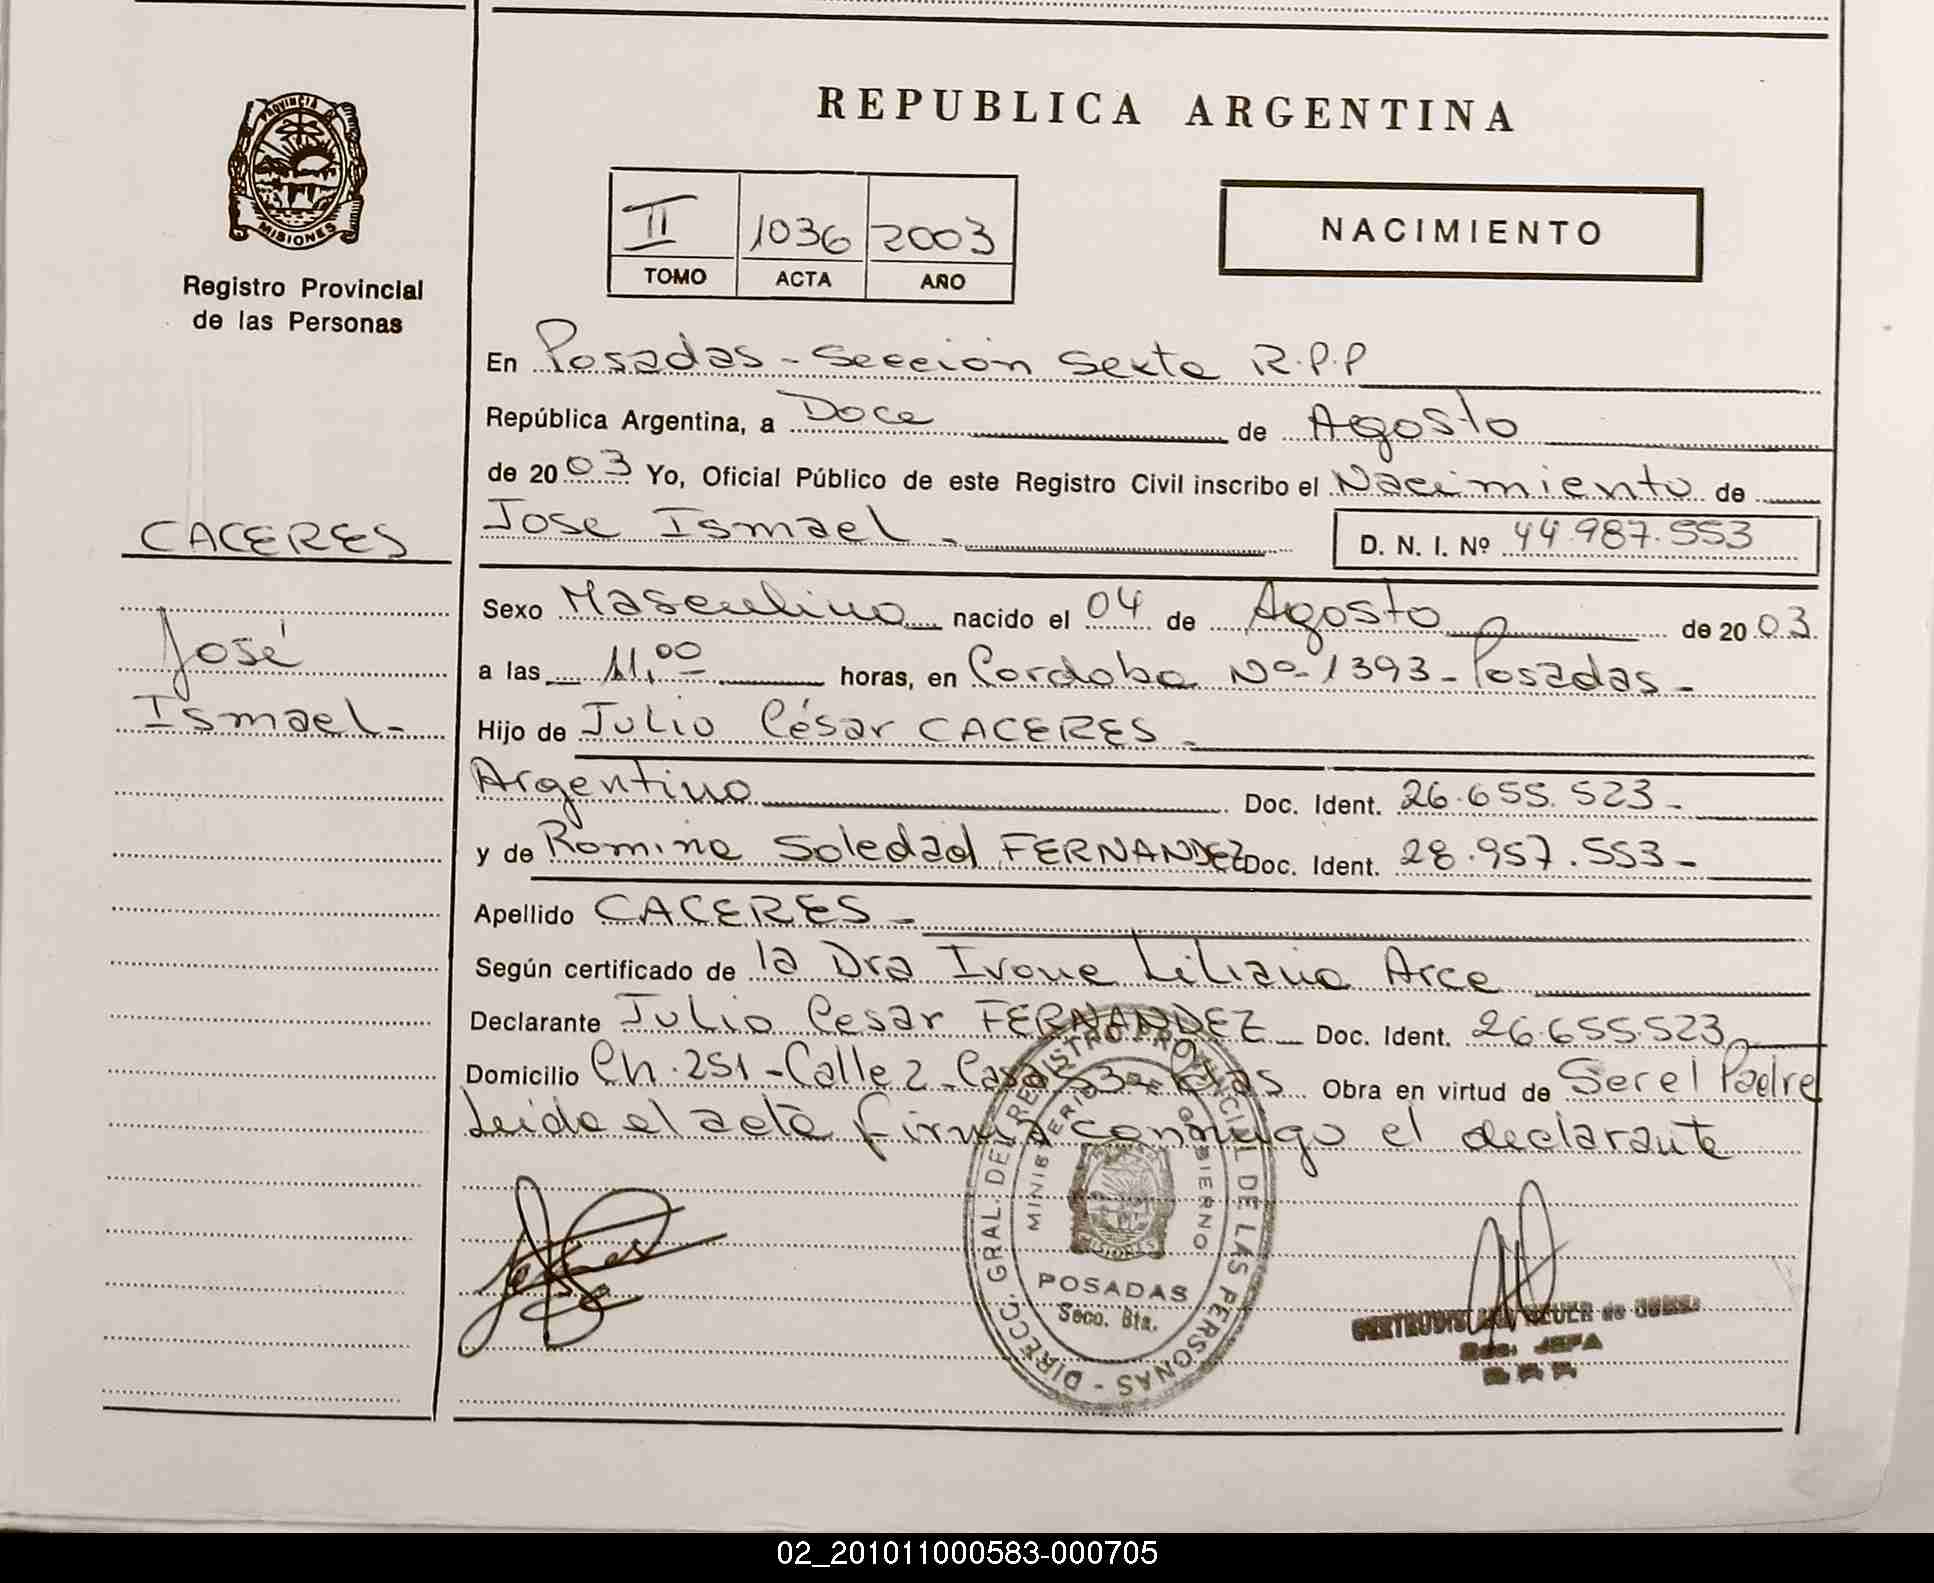 PROVINCIA
MISIONES
Registro Provincial
de las Personas
CACERES
José
Ismael-
REPUBLICA ARGENTINA
II 1036 2003
TOMO ACTA AÑO
NACIMIENTO
En Posadas - Sección Sexta R.P.P
República Argentina, a Doce de Agosto
de 2003 Yo, Oficial Público de este Registro Civil inscribo el Nacimiento de
Jose Ismael - D. N. I. Nº 44.987.553
Sexo Masculino nacido el 04 de Agosto de 2003.
a las 11,00 horas, en Cordoba Nº 1393 - Posadas -
Hijo de Julio César CACERES -
Argentino Doc. Ident. 26.655.523 -
y de Romina Soledad FERNANDEZ Doc. Ident. 28.957.553 -
Apellido CACERES -
Según certificado de la Dra Ivone Liliana Arce
Declarante Julio Cesar FERNANDEZ Doc. Ident. 26.655.523
Domicilio Ch. 251 - Calle 2 - Casa 53 - Pdas. Obra en virtud de Ser el Padre
Leida el acta firma conmigo el declarante
DIRECC. GRAL. DEL REGISTRO PROVINCIAL DE LAS PERSONAS -
MINISTERIO DE GOBIERNO
MISIONES
POSADAS
Secc. 6ta.
JEFA
02_201011000583-000705